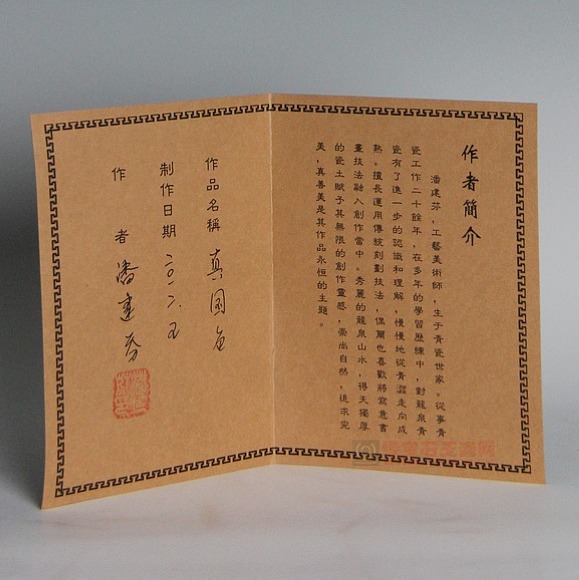 作者簡介
潘建芬，工藝美術師，生于青瓷世家。從事青
瓷工作二十餘年，在多年的學習歷練中，對龍泉青
瓷有了進一步的認識和理解，慢慢地從青澀走向成
熟。擅長運用傳統刻劃技法，偶爾也喜歡將寫意書
畫技法融入創作當中。秀麗的龍泉山水，得天獨厚
的瓷土賦予其無限的創作靈感，崇尚自然，追求完
美，真善美是其作品永恒的主題。
作品名稱 真國色
制作日期 二〇一六.五
作者 潘建芬